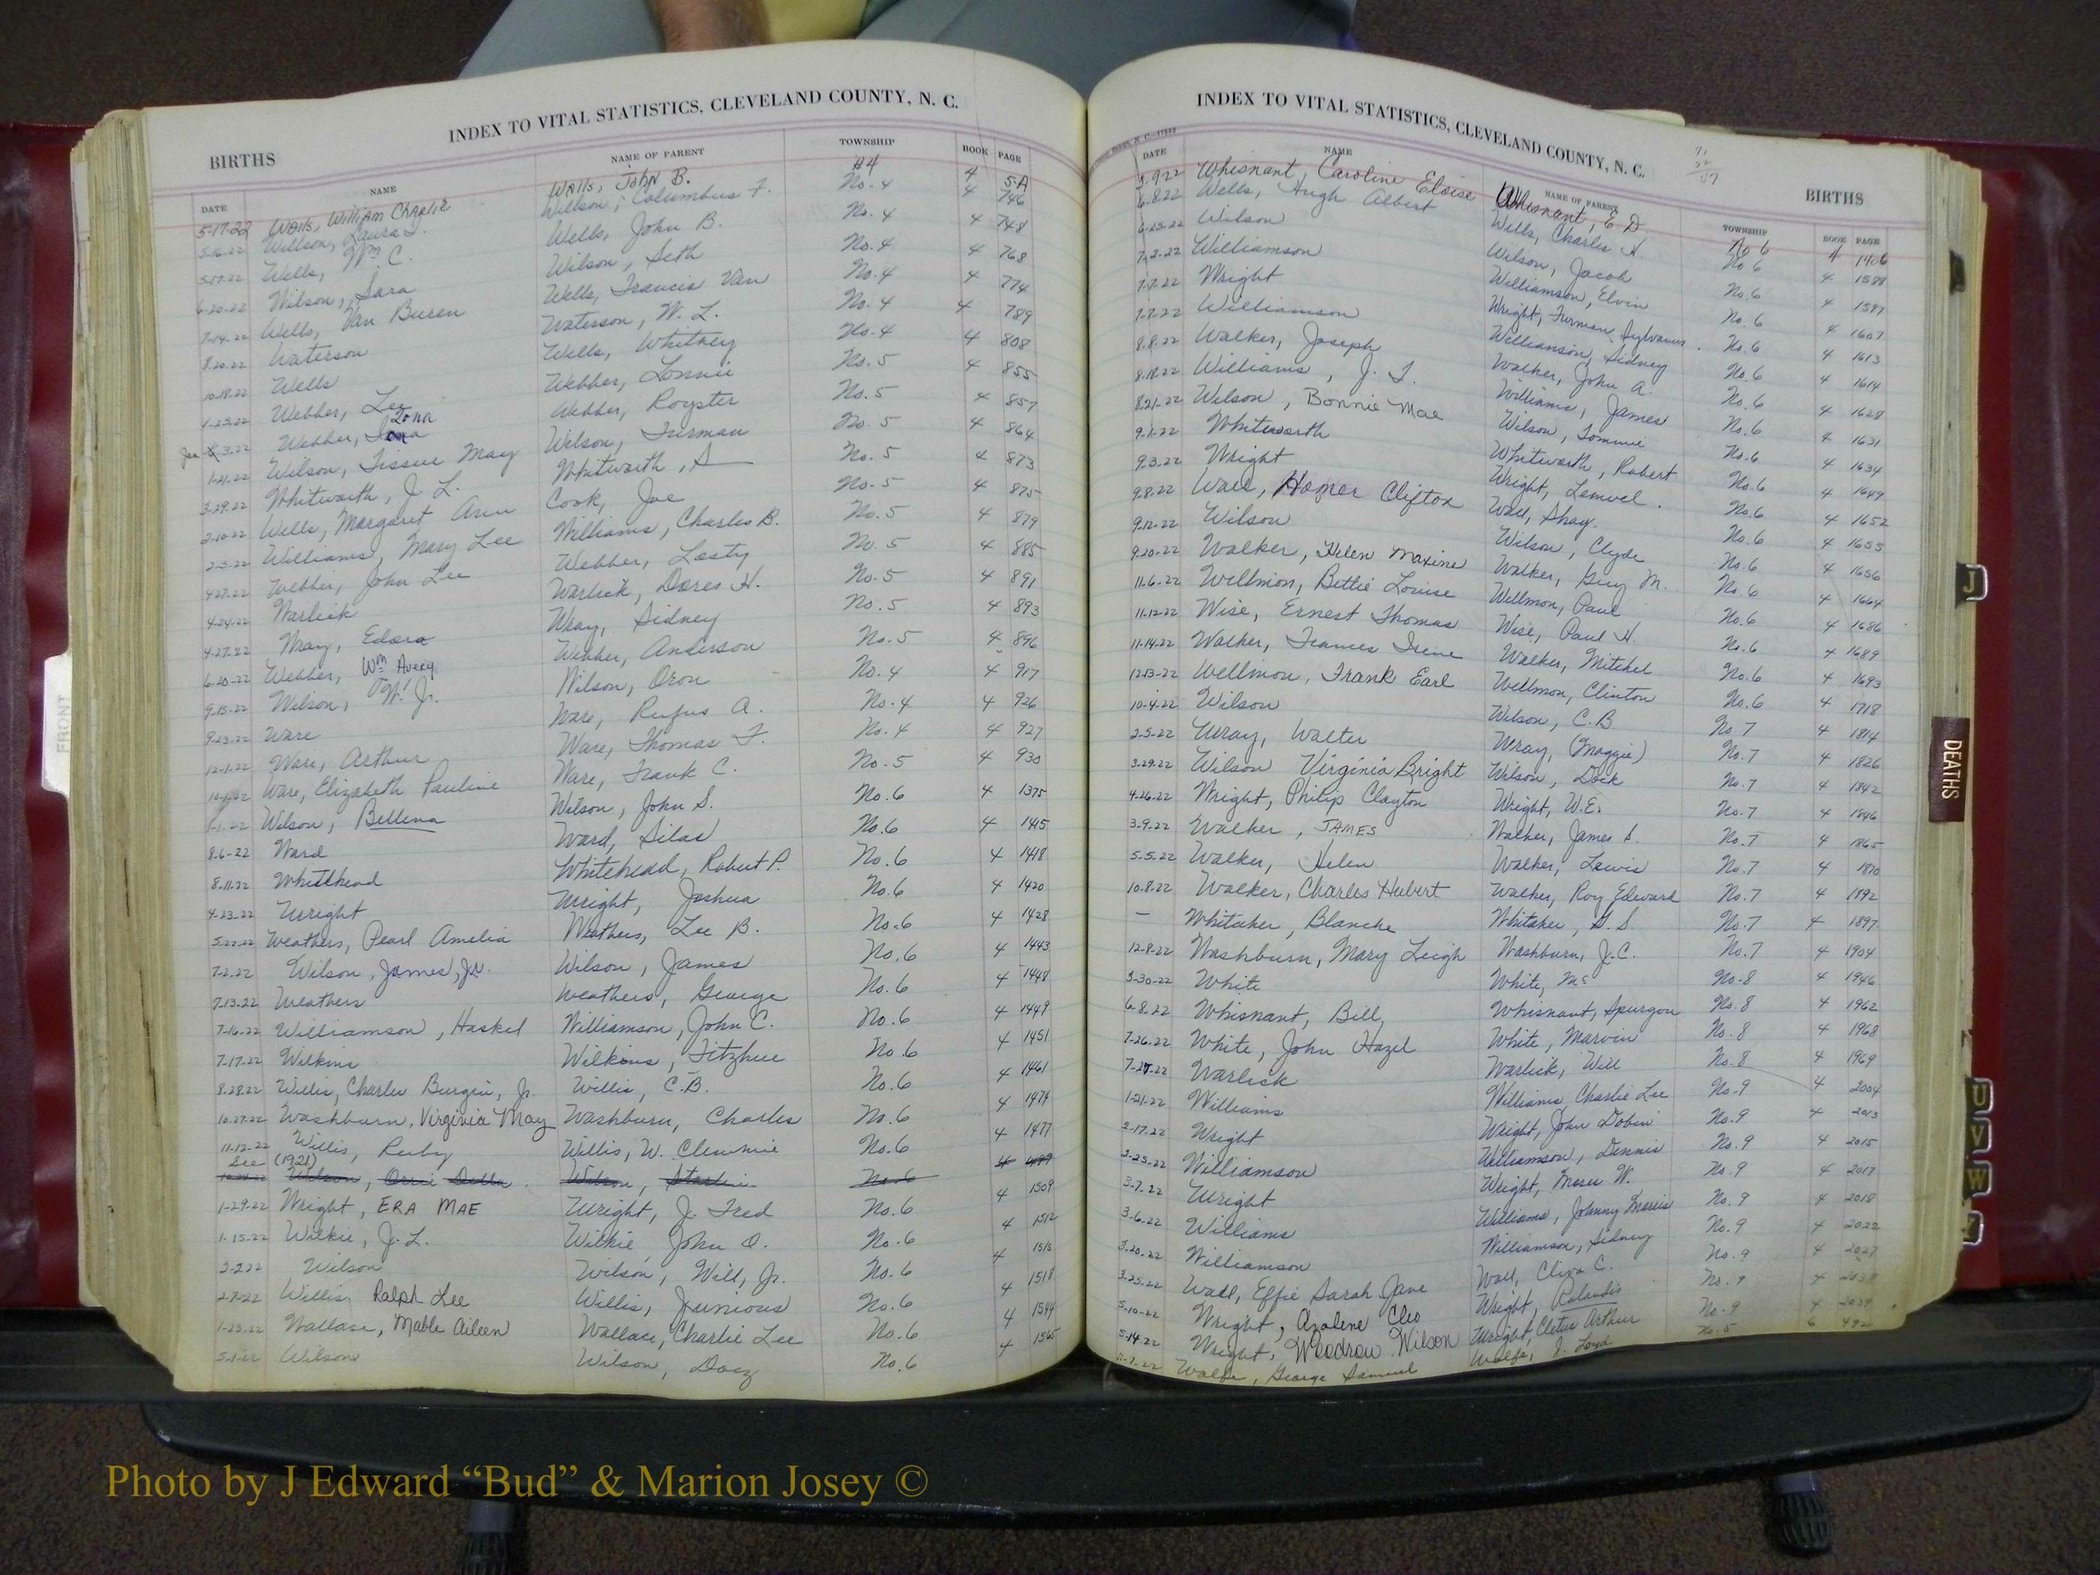 INDEX TO VITAL STATISTICS, CLEVELAND COUNTY, N. C.
BIRTHS
DATE NAME NAME OF PARENT TOWNSHIP BOOK PAGE
5-17-22 Walls, William Walls, John B. #4 4 5-A
5-16-22 Willson, Laura Willson, Columbus F. No. 4 4 746
5-17-22 Wells, Wm C. Wells, John B. No. 4 4 748
6-20-22 Wilson, Sara Wilson, Seth No. 4 4 768
7-14-22 Wells, Van Buren Wells, Francis Van No. 4 4 774
8-20-22 Waterson Waterson, W. L. No. 4 4 789
10-18-22 Wells Wells, Whitney No. 4 4 808
1-25-22 Webber, Lee Webber, Lonnie No. 5 4 855
Webber, Webber, Royster No. 5 4 857
1-21-22 Wilson, Tissue May Wilson, Furman No. 5 4 864
3-29-22 Whitworth, J. L. Whitworth, S No. 5 4 873
2-10-22 Wells, Margaret Ann Cook, Joe No. 5 4 875
2-5-22 Williams, Mary Lee Williams, Charles B. No. 5 4 879
4-27-22 Webber, John Lee Webber, Losty No. 5 4 885
4-24-22 Warlick Warlick, Dores H. No. 5 4 891
4-27-22 Wray, Edora Wray, Sidney No. 5 4 893
6-20-22 Webber, Wm Avery Webber, Anderson No. 5 4 896
9-15-22 Wilson, W. Jr. Wilson, Oron No. 4 4 917
9-23-22 Ware Ware, Rufus A. No. 4 4 926
12-1-22 Ware, Arthur Ware, Thomas F. No. 4 4 927
Ware, Elizabeth Pauline Ware, Frank C. No. 5 4 930
1-1-22 Wilson, Bellena Wilson, John S. No. 6 4 1375
8-6-22 Ward Ward, Silas No. 6 4 1415
8-11-22 Whitehead Whitehead, Robert P. No. 6 4 1418
4-23-22 Wright Wright, Joshua No. 6 4 1420
5-22-22 Weathers, Pearl Amelia Weathers, Lee B. No. 6 4 1428
7-2-22 Wilson, James, Jr. Wilson, James No. 6 4 1443
7-13-22 Weathers Weathers, George No. 6 4 1448
7-16-22 Williamson, Haskel Williamson, John C. No. 6 4 1449
7-17-22 Wilkins Wilkins, Fitzhue No. 6 4 1451
8-28-22 Willis, Charles Burgin, Jr. Willis, C. B. No. 6 4 1461
10-27-22 Washburn, Virginia May Washburn, Charles No. 6 4 1474
11-12-22 Willis, Ruby Willis, W. No. 6 4 1477
See (1921)
Wilson, Wilson, No. 6 4
1-29-22 Wright, ERA MAE Wright, J. Fred No. 6 4 1509
1-15-22 Wilkie, J. L. Wilkie, John O. No. 6 4 1512
2-2-22 Wilson Wilson, Will, Jr. No. 6 4 1515
2-7-22 Willis, Ralph Lee Willis, Junious No. 6 4 1518
1-23-22 Wallace, Mable Aileen Wallace, Charlie Lee No. 6 4 1544
5-1-22 Wilson Wilson, No. 6 4 1565
INDEX TO VITAL STATISTICS, CLEVELAND COUNTY, N. C.
BIRTHS
DATE NAME NAME OF PARENT TOWNSHIP BOOK PAGE
3-9-22 Whisnant, Caroline Eloise Whisnant, E D No 6 4 1406
6-8-22 Wells, Hugh Albert Wells, Charles H. No 6 4 1584
6-25-22 Wilson Wilson, Jacob No. 6 4 1597
7-2-22 Williamson Williamson, Elvin No. 6 4 1607
7-7-22 Wright Wright, Furman Sylvanus No. 6 4 1613
7-7-22 Williamson Williamson, Sidney No. 6 4 1614
8-8-22 Walker, Joseph Walker, John A. No. 6 4 1628
8-18-22 Williams, J. T. Williams, James No. 6 4 1631
8-21-22 Wilson, Bonnie Mae Wilson, Tommie No. 6 4 1634
9-1-22 Whitworth Whitworth, Robert No. 6 4 1649
9-3-22 Wright Wright, Lemuel No. 6 4 1652
9-8-22 Wall, Homer Clifton Wall, Shay No. 6 4 1655
9-12-22 Wilson Wilson, Clyde No. 6 4 1656
9-20-22 Walker, Helen Maxine Walker, Guy M. No. 6 4 1664
11-6-22 Wellmon, Bettie Louise Wellmon, Paul No. 6 4 1686
11-12-22 Wise, Ernest Thomas Wise, Paul H. No. 6 4 1689
11-14-22 Walker, Frances Irene Walker, Mitchel No. 6 4 1693
12-13-22 Wellmon, Frank Earl Wellmon, Clinton No. 6 4 1718
10-4-22 Wilson Wilson, C. B. No. 7 4 1814
2-5-22 Wray, Walter Wray, (Maggie) No. 7 4 1826
3-29-22 Wilson Virginia Bright Wilson, Dock No. 7 4 1842
4-26-22 Wright, Philip Clayton Wright, W. E. No. 7 4 1846
3-9-22 Walker, JAMES Walker, James S. No. 7 4 1865
5-5-22 Walker, Helen Walker, Lewis No. 7 4 1870
10-8-22 Walker, Charles Hubert Walker, Roy Edward No. 7 4 1892
— Whitaker, Blanche Whitaker, G. S. No. 7 4 1897
12-8-22 Washburn, Mary Leigh Washburn, J. C. No. 7 4 1904
3-30-22 White White, Mc No. 8 4 1946
6-8-22 Whisnant, Bill Whisnant, Spurgon No. 8 4 1962
7-26-22 White, John Hazel White, Marvin No. 8 4 1968
7-27-22 Warlick Warlick, Will No. 8 4 1969
1-21-22 Williams Williams, Charlie Lee No. 9 4 2004
2-17-22 Wright Wright, John Dobin No. 9 4 2013
2-25-22 Williamson Williamson, Dennis No. 9 4 2015
3-7-22 Wright Wright, W. No. 9 4 2017
3-6-22 Williams Williams, Johnny Morris No. 9 4 2018
3-20-22 Williamson Williamson, Sidney No. 9 4 2022
3-25-22 Wall, Effie Sarah Jane Wall, C. No. 9 4 2027
5-10-22 Wright, Azalene Cleo Wright, Rolandis No. 9 4 2028
5-14-22 Wright, Woodrow Wilson Wright, Cletus Arthur No. 9 4 2039
11-7-22 Wolfe, George Samuel Wolfe, J. Loyd No. 5 6 492
FRONT
J
DEATHS
U
V
W
Y
Photo by J Edward “Bud” & Marion Josey ©